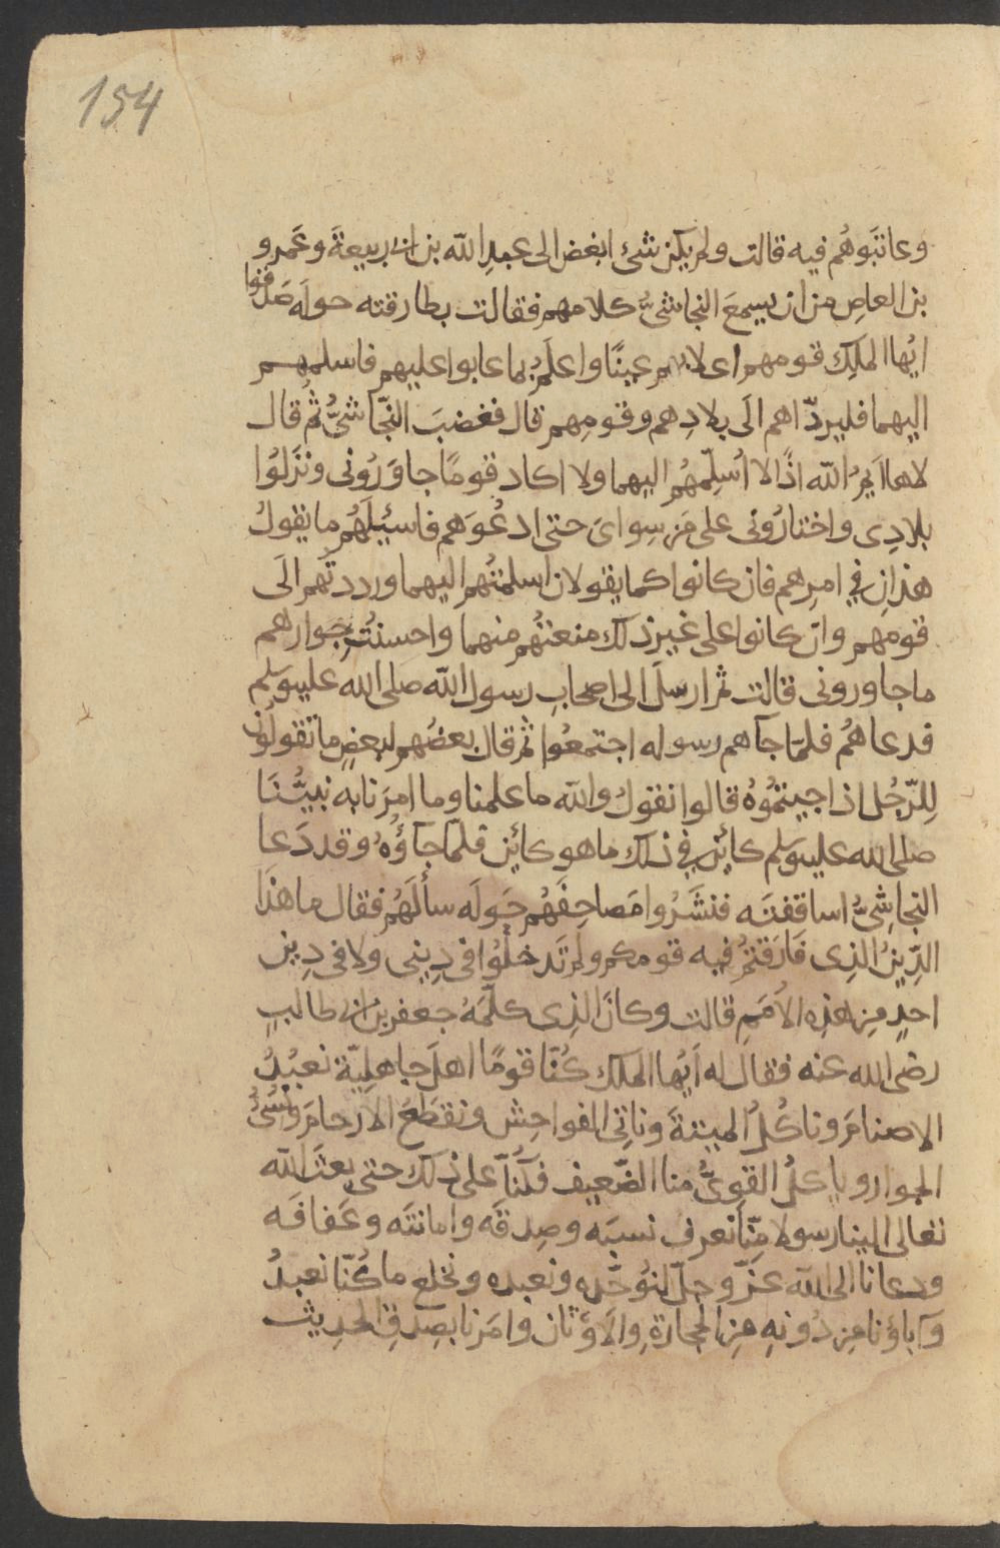 154
وعاتبوهم فيه قالت ولم يكن شئ ابغض الى عبدِ الله بن ابى ربيعةَ وعَمرو
بن العاصِ من ان يسمعَ النجاشىُّ كلامهم فقالت بطارقته حولَه صَدقوا
ايُّها الملِك قومهم اعلا بهم عينًا واعلَمُ بما عابوا عليهم فاسلمهم
اليهما فليردّاهم الَى بلادِهم وقومِهم قال فغضبَ النجّاشىُّ ثُم قال
لاها ايمُ الله اذًا لا اُسلِّمهُم اليهما ولا اكاد قومًا جاوَرُونى ونَزَلوُا
بلادِى واختارُونى على مَن سِواىَ حتى ادعُوَهم فاسئلَهُم ما يقولُ
هذانِ في امرِهم فان كانوا كما يقولان اسلمتُهم اليهما ورددتُهم الَى
قومهم وان كانوا على غيرِ ذلك منعتُهم منهما واحسنتُ جِوارهم
ما جاورونى قالت ثم ارسلَ الى اصحابِ رسولِ الله صلى الله عليه وسلم
فدعاهُم فلمّا جآهم رسوله اجتمعُوا ثم قال بعضُهم لبعضٍ ما تقولُون
لِلرّجُل اذا جيتمُوُهُ قالوا نقولُ والله ما علمنا وما امرَنا به نبيُّنَا
صلى الله عليه وسلم كائِن في ذلك ما هو كائِن فلمّا جآؤُهُ وقد دَعا
النجاشِىُّ اساقفتَه فنشَرُوا مَصاحِفَهُم حَولَه سألَهُم فقال ما هذَا
الدِّينُ الذِى فَارَقتمُ فيه قومكم ولم تَدخلُوا فى دِينى ولا فى دِين
احدٍ مِن هذِه الاُمَمِ قالت وكانَ الذِى كلّمَهُ جعفر بنُ ابى طالبٍ
رضى الله عنه فقال له اَيُّها الملك كُنّا قومًا اهلَ جاهلِيّة نعبُدُ
الاصنامَ وناكُلُ الميتةَ وناتِى الفواحِش ونقطَعُ الارحامَ ونُسئُ
الجوار وياكلُ القَوِىُّ منا الضّعِيف فكُنّا على ذلك حتى بعثَ الله
تعالى الينا رسولا مِنّا نعرف نسبَه وصِدقَه وامانتَه وعَفافَه
ودعانا الى الله عزّ وجلّ لنوُحّده ونعبده ونخلع ما كُنّا نعبدُ
وآباؤنا مِن دُونِهِ مِن الحجارةِ والاَوثان وامَرنا بصِدقِ الحدِيث